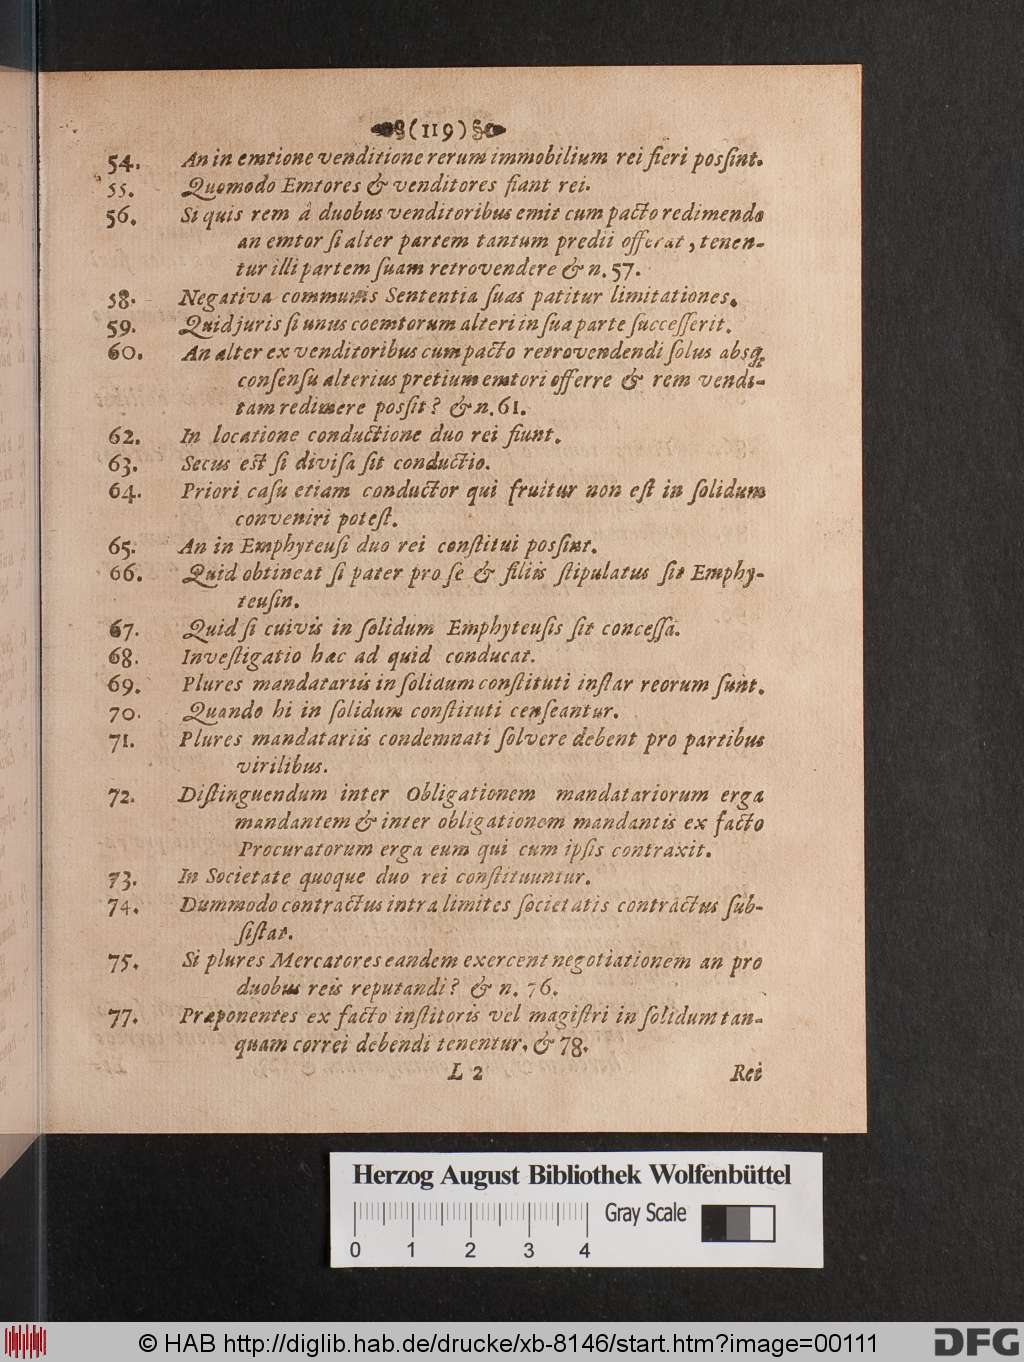 (119)
54. An in emtione venditione rerum immobilium rei fieri possint.
55. Quomodo Emtores & venditores fiant rei.
56. Si quis rem â duobus venditoribus emit cum pacto redimendo
an emtor si alter partem tantum predii offerat, tenen-
tur illi partem suam retrovendere & n. 57.
58. Negativa communis Sententia suas patitur limitationes.
59. Quid juris si unus coemtorum alteri in sua parte successerit.
60. An alter ex venditoribus cum pacto retrovendendi solus absq;
consensu alterius pretium emtori offerre & rem vendi-
tam redimere possit? & n. 61.
62. In locatione conductione duo rei fiunt.
63. Secus est si divisa sit conductio.
64. Priori casu etiam conductor qui fruitur non est in solidum
conveniri potest.
65. An in Emphyteusi duo rei constitui possint.
66. Quid obtineat si pater pro se & filiis stipulatus sit Emphy-
teusin.
67. Quid si cuivis in solidum Emphyteusis sit concessa.
68. Investigatio hæc ad quid conducat.
69. Plures mandatariis in solidum constituti instar reorum sunt.
70. Quando hi in solidum constituti censeantur.
71. Plures mandatariis condemnati solvere debent pro partibus
virilibus.
72. Distinguendum inter Obligationem mandatariorum erga
mandantem & inter obligationem mandantis ex facto
Procuratorum erga eum qui cum ipsis contraxit.
73. In Societate quoque duo rei constituuntur.
74. Dummodo contractus intra limites societatis contractus sub-
sistat.
75. Si plures Mercatores eandem exercent negotiationem an pro
duobus reis reputandi? & n. 76.
77. Præponentes ex facto institoris vel magistri in solidum tan-
quam correi debendi tenentur. & 78.
L 2 Rei
Herzog August Bibliothek Wolfenbüttel
Gray Scale
0 1 2 3 4
© HAB http://diglib.hab.de/drucke/xb-8146/start.htm?image=00111
DFG